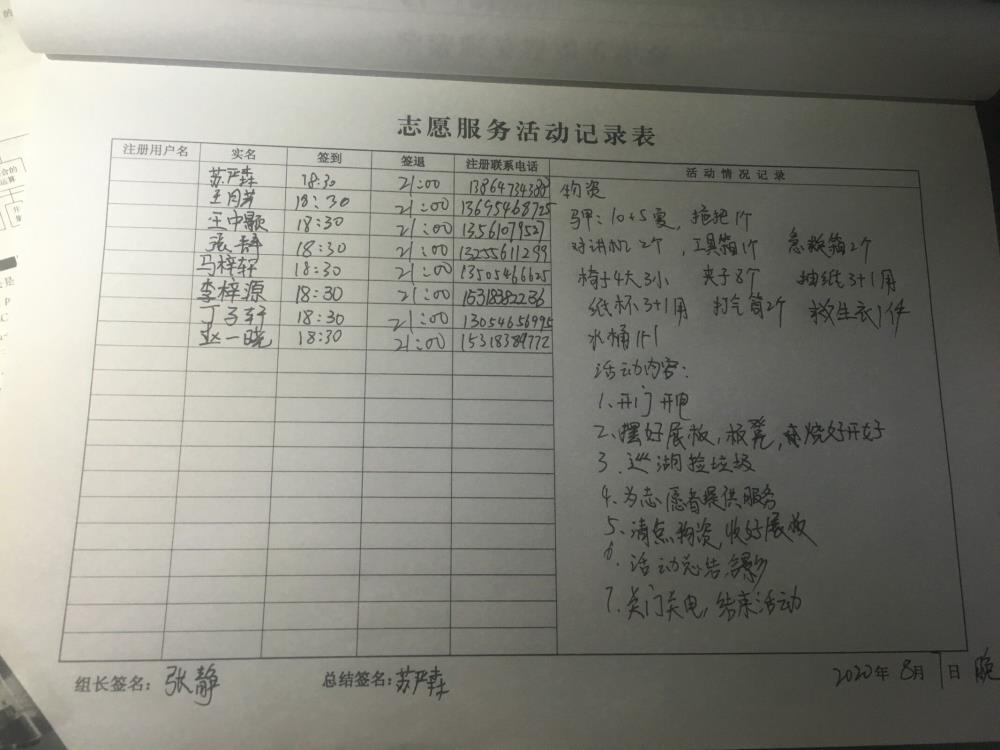 志愿服务活动记录表
注册用户名 实名 签到 签退 注册联系电话 活动情况记录
苏严森 18:30 21:00
王月芳 18:30 21:00 13695468725
王中颢 18:30 21:00 13561079527
张静 18:30 21:00 13255611299
马梓轩 18:30 21:00 13505466625
李梓源 18:30 21:00 15318382236
丁子轩 18:30 21:00 13054656995
赵一晓 18:30 21:00 15318389772
物资
马甲:10+5夏,拖把1个
对讲机2个,工具箱1个 急救箱2个
椅子4大3小 夹子8个 抽纸3+1用
纸杯3+1用 打气筒2个 救生衣1件
水桶1个
活动内容:
1.开门开电
2.摆好展板,板凳,烧好开好
3.巡湖捡垃圾
4.为志愿者提供服务
5.清点物资,收好展板
6.活动总结,合影
7.关门关电,结束活动
组长签名:张静 总结签名:苏严森 2020年8月7日 晚